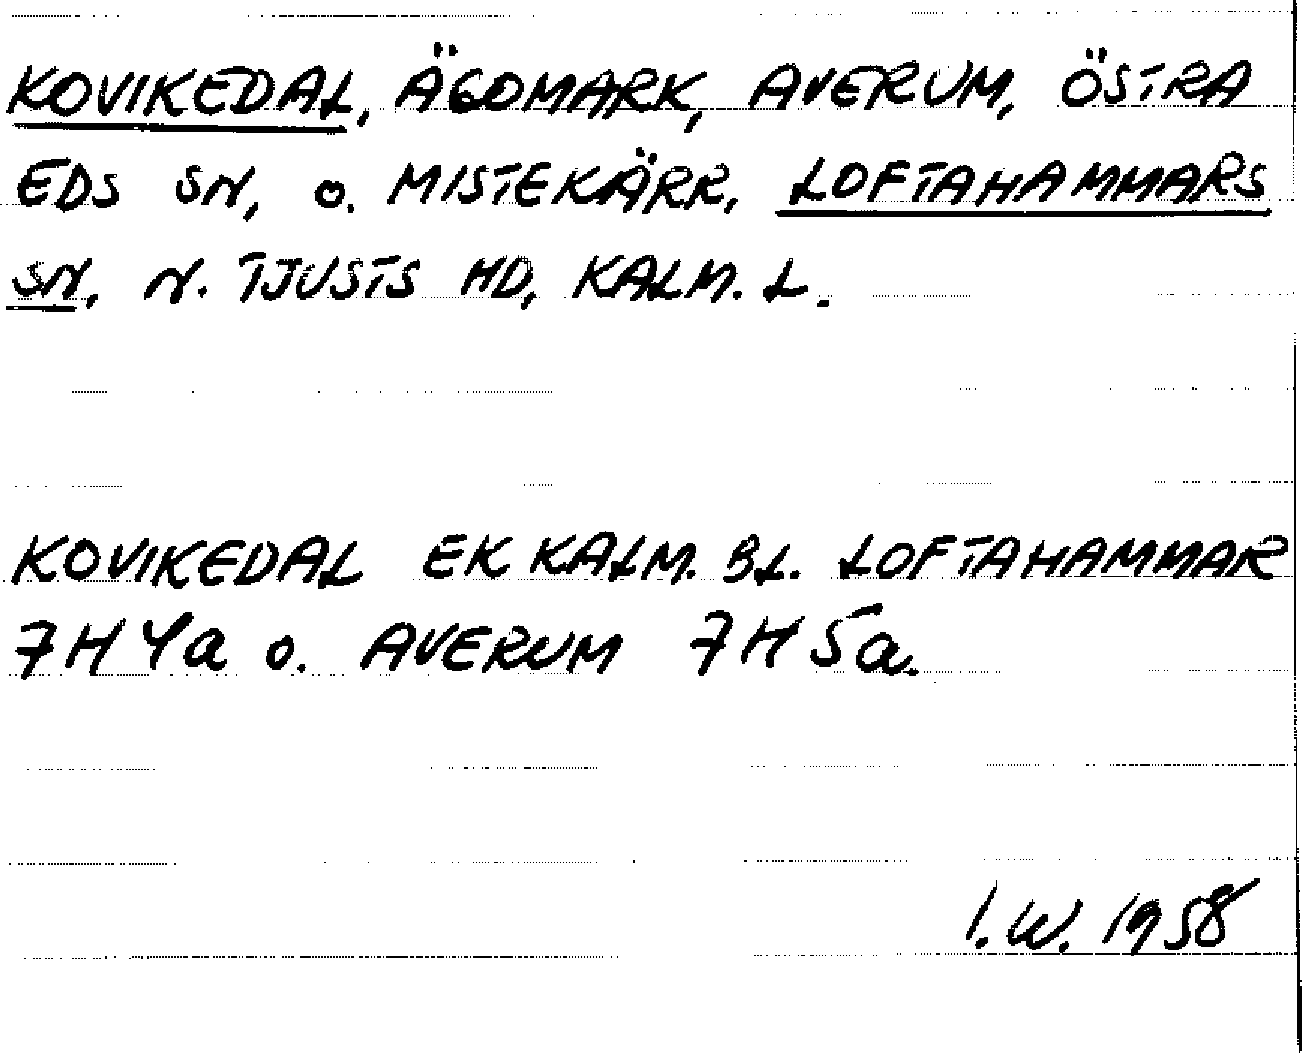 KOVIKEDAL, ÄGOMARK, AVERUM, ÖSTRA
EDS SN, o. MISTEKÄRR, LOFTAHAMMARS
SN, N. TJUSTS HD, KALM. L.
KOVIKEDAL EK KALM. BL. LOFTAHAMMAR
7H4a o. AVERUM 7H5a.
I.W. 1958